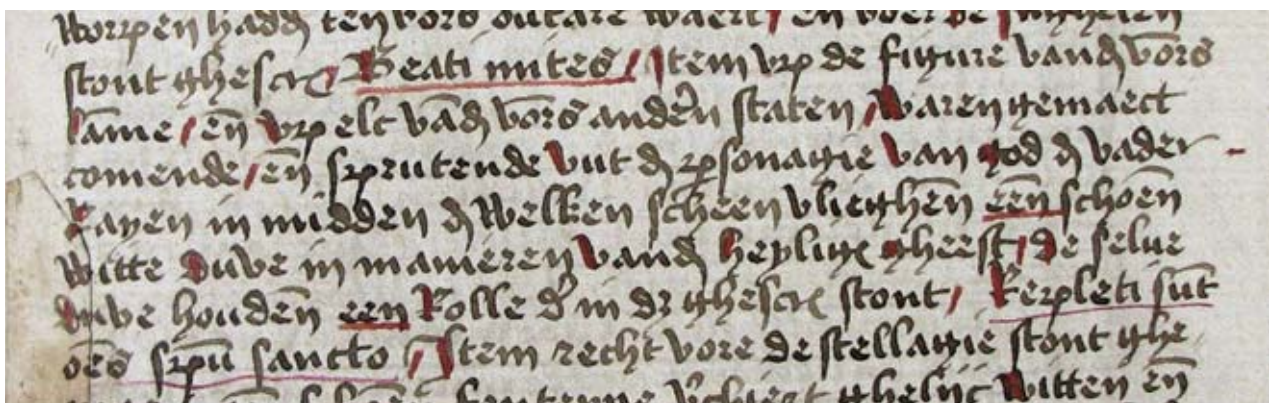 worpen hadd ten vors outare waert / en voer de
stont ghescr / Beati mites / Item up de figure vand vors
lāme / eñ up elc vād vors anderen staten / waren gemaect
comende / eñ sprutende uut d psonagie van god d vader
Rayen in midden d welken scheen vlieghēn eēn schoēn
witte duve in manieren vand heylig gheest / de selve
duve houdēn een Rolle dr in dz ghescr stont / Repleti sūt
oēs spū sancto / Item recht vore de stellagie stont ghe
fonteyne ghelijc witten eñ